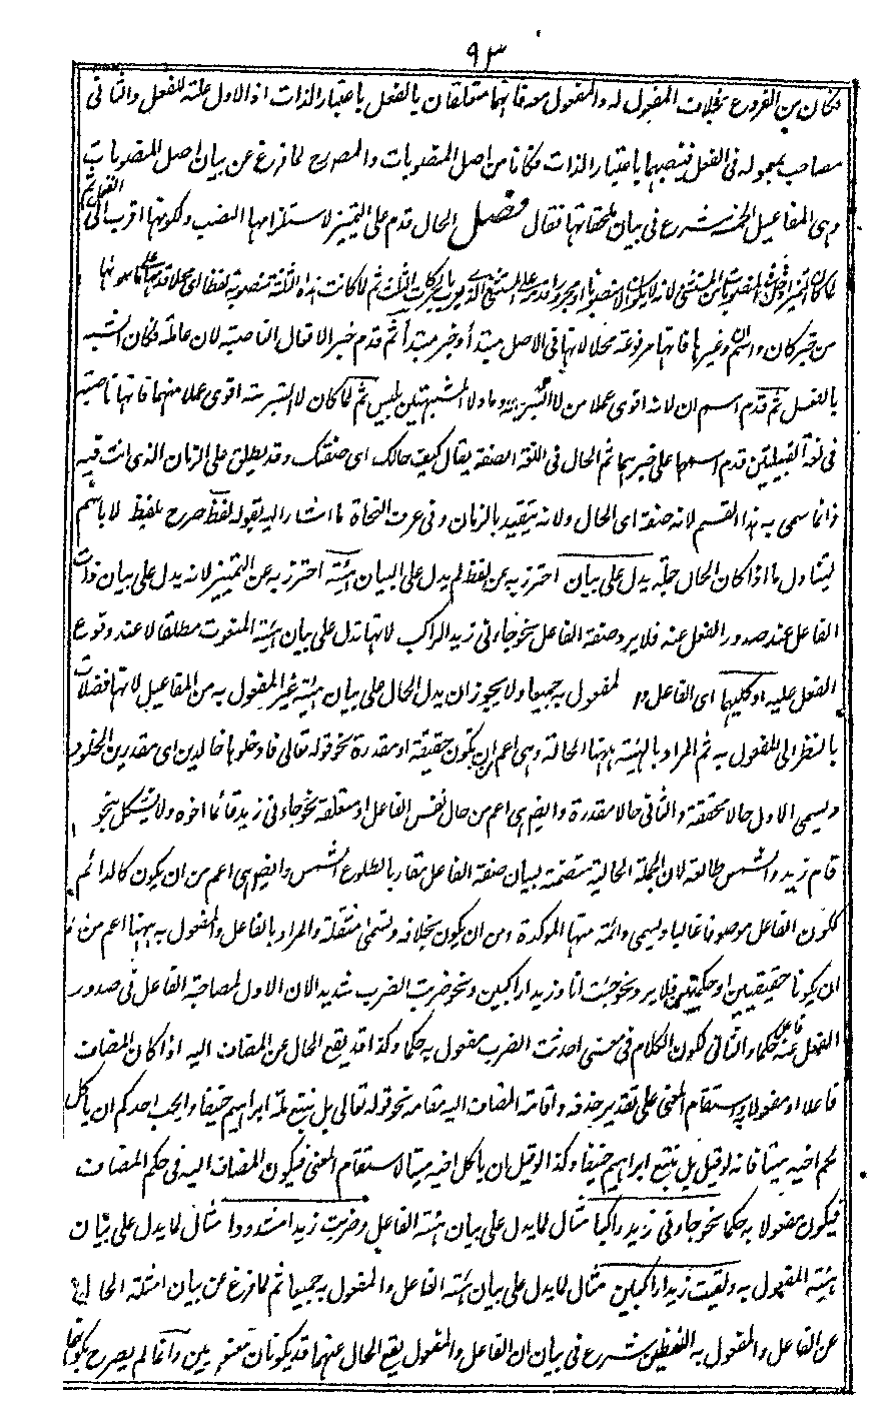 ٩٣
فكان من الفروع بخلاف المفعول له والمفعول معه فانهما متعلقان بالفعل باعتبار الذات اذ الاول علة للفعل والثانى
مصاحب لمعموله فى الفعل فنصبهما باعتبار الذات فكانا من اصل المنصوبات والمصرح لما فرغ عن بيان اصل المنصوبات
وهى المفاعيل الخمسة شرع فى بيان ملحقاتها فقال فصل الحال قدم على التمييز لاستلزامها النصب ولكونها اقرب الى الفعل ثم
لما كان التمييز المنصوبات من المستثنى لانه لا يكون الا منصوبا او مجرورا قدمه على المستثنى الذى يعرب بالحركات الثلث ثم لما كانت هذه الثلثة منصوبة لفظا او محلا قدمها على ما سواها
من خبر كان واسم ان وغيرها فانها مرفوعة محلا لانها فى الاصل مبتدأ وخبر مبتدأ ثم قدم خبر الافعال الناصبة لان عامله فكان الشبه
بالفعل ثم قدم اسم ان لانه اقوى عملا من لا التبرئة وما ولا المشبهتين بليس ثم لما كان لا التبرئة اقوى عملا منهما فانها ناصبة
فى لغة القبيلتين قدم اسمها على خبرهما ثم الحال فى اللغة الصفة يقال كيف حالك اى صفتك وقد يطلق على الزمان الذى انت فيه
وانما سمى به هذا القسم لانه صفة اى الحال ولانه يتقيد بالزمان وفى عرف النحاة ما اشار اليه بقوله لفظ صرح بلفظ لا باسم
ليتناول ما اذا كان الحال جملة يدل على بيان احترز به عن لفظ لم يدل على البيان هيئة احترز به عن التمييز لانه يدل على بيان ذات
الفاعل عند صدور الفعل عنه فلا يرد صفة الفاعل نحو جاءنى زيد الراكب لانها تدل على بيان هيئة المنعوت مطلقا لا عند وقوع
الفعل عليه او كليهما اى الفاعل والمفعول به جميعا ولا يجوز ان يدل الحال على بيان هيئة غير المفعول به من المفاعيل لانها فضلات
بالنظر الى المفعول به ثم المراد بالهيئة ههنا الحالة وهى اعم من ان يكون حقيقة او مقدرة نحو قوله تعالى فادخلوها خالدين اى مقدرين الخلود
ويسمى الاول حالا محققة والثانى حالا مقدرة وايضا هى اعم من حال نفس الفاعل او متعلقه نحو جاءنى زيد قائما اخوه ولا يشكل بنحو
قام زيد والشمس طالعة لان الجملة الحالية متضمنة لبيان صفة الفاعل مقارنا لطلوع الشمس وايضا هى اعم من ان يكون كالدائم
لكون الفاعل موصوفا غالبا ويسمى دائمة منها المؤكدة ومن ان يكون بخلافه وتسمى منتقلة والمراد بالفاعل والمفعول به ههنا اعم من
ان يكونا حقيقيين او حكميين فلا يرد نحو جئت انا وزيدا راكبين ونحو ضربت الضرب شديدا لان الاول لمصاحبة الفاعل فى صدور
الفعل عنه فاعل حكما والثانى لكون الكلام فى معنى احدثت الضرب مفعول به حكما وكذا قد يقع الحال عن المضاف اليه اذا كان المضاف
فاعلا او مفعولا به واستقام المعنى على تقدير حذفه واقامة المضاف اليه مقامه نحو قوله تعالى بل نتبع ملة ابراهيم حنيفا وايحب احدكم ان ياكل
لحم اخيه ميتا فانه لو قيل بل نتبع ابراهيم حنيفا وكذا لو قيل ان ياكل اخيه ميتا لاستقام المعنى فيكون المضاف اليه فى حكم المضاف
فيكون مفعولا به حكما نحو جاءنى زيد راكبا مثال لما يدل على بيان هيئة الفاعل وضربت زيدا مشدودا مثال لما يدل على بيان
هيئة المفعول به ولقيت زيدا راكبين مثال لما يدل على بيان هيئة الفاعل والمفعول به جميعا ثم لما فرغ عن بيان امثلة الحال
عن الفاعل والمفعول به اللفظيين شرع فى بيان ان الفاعل والمفعول يقع الحال عنهما قد يكونان معنويين وانما لم يصرح بكونها